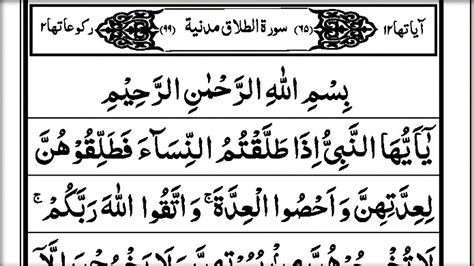 اٰیاتها ۱۲ (۶۵) سورة الطلاق مدنیة (۹۹) رکوعاتها ۲
بِسْمِ اللهِ الرَّحْمٰنِ الرَّحِیْمِ
یٰۤاَیُّهَا النَّبِیُّ اِذَا طَلَّقْتُمُ النِّسَآءَ فَطَلِّقُوْهُنَّ
لِعِدَّتِهِنَّ وَ اَحْصُوا الْعِدَّةَ ۚ وَ اتَّقُوا اللهَ رَبَّكُمْ ۚ